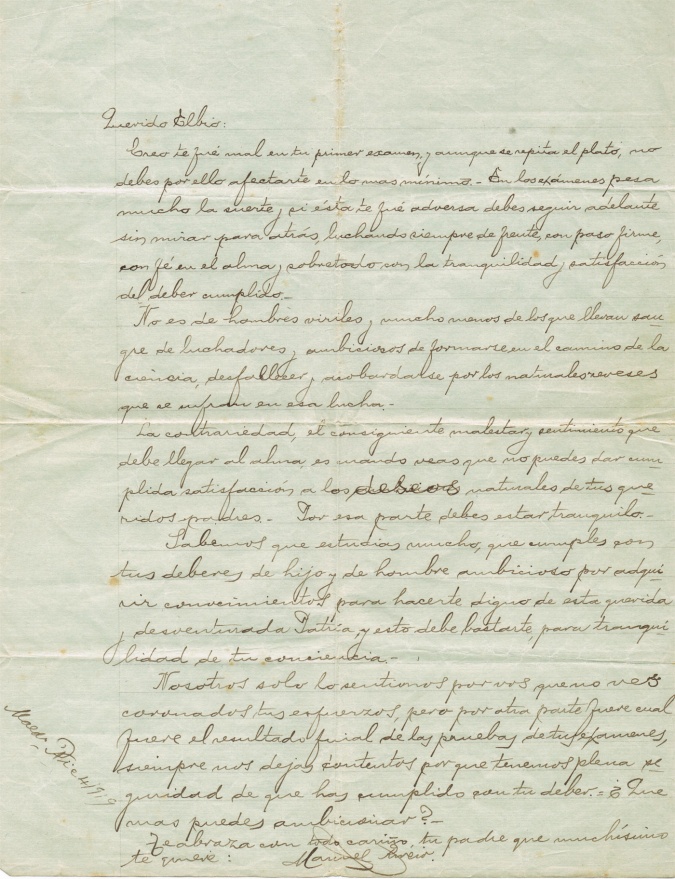 Querido Elbio:
Creo te fué mal en tu primer examen, y aunque se repita el plato, no
debes por ello afectarte en lo mas mínimo.- En los exámenes pesa
mucho la suerte y si ésta te fué adversa debes seguir adelante
sin mirar para atrás, luchando siempre de frente, con paso firme,
con fé en el alma y sobretodo, con la tranquilidad y satisfacción
del deber cumplido.-
No es de hombres viriles y mucho menos de los que llevan san-
gre de luchadores y ambiciosos de formarse en el camino de la
ciencia, desfallecer y acobardarse por los naturales reveses
que se sufran en esa lucha.-
La contrariedad, el consiguiente malestar y sentimiento que
debe llegar al alma, es cuando veas que no puedes dar cum-
plida satisfacción a los deseos naturales de tus que-
ridos padres.- Por esa parte debes estar tranquilo.-
Sabemos que estudias mucho, que cumples con
tus deberes de hijo y de hombre ambicioso por adqui-
rir conocimientos para hacerte digno de esta querida
y desventurada Patria, y esto debe bastarte para tranqui-
lidad de tu conciencia.-
Nosotros solo lo sentimos por vos que no ves
coronados tus esfuerzos, pero por otra parte fuere cual
fuere el resultado final de las pruebas de tus exámenes,
siempre nos dejas contentos por que tenemos plena se-
guridad de que has cumplido con tu deber.- ¿Que
mas puedes ambicionar?-
Te abraza con todo cariño, tu padre que muchísimo
te quiere: Manuel
Dic 4/919